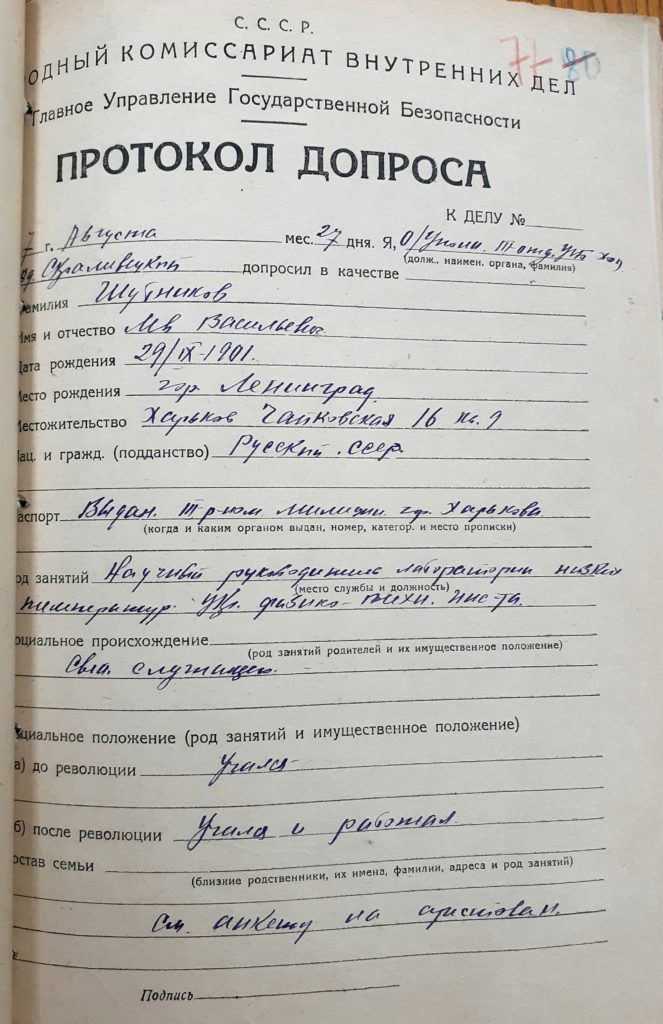 С. С. С. Р.
77 80
ОДНЫЙ КОМИССАРИАТ ВНУТРЕННИХ ДЕЛ
Главное Управление Государственной Безопасности
ПРОТОКОЛ ДОПРОСА
К ДЕЛУ №
7 г. Августа мес. 27 дня. Я, О/Уполн. III отд. УГБ
(долж., наимен. органа, фамилия)
Скраливецкий допросил в качестве
амилия Шубников
Имя и отчество Лев Васильевич
Дата рождения 29/IX-1901.
Место рождения гор. Ленинград
Местожительство Харьков Чайковская 16 кв. 9
ац. и гражд. (подданство) Русский. СССР.
аспорт Выдан. III р-ном милиции гор. Харькова
(когда и каким органом выдан, номер, категор. и место прописки)
од занятий Научный руководитель лаборатории низких
(место службы и должность)
температур Укр. физико-техн. ин-та.
оциальное происхождение
(род занятий родителей и их имущественное положение)
Сын служащего.
циальное положение (род занятий и имущественное положение)
а) до революции Учился
б) после революции Учился и работал.
остав семьи
(близкие родственники, их имена, фамилии, адреса и род занятий)
См. анкету на арестован.
Подпись